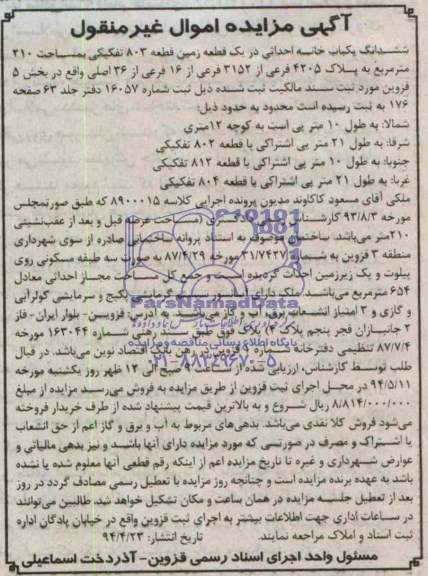 آگهی مزایده اموال غیرمنقول
ششدانگ یکباب خانه احداثی در یک قطعه زمین قطعه ۸۰۳ تفکیکی بمساحت ۲۱۰
مترمربع به پلاک ۴۲۰۵ فرعی از ۳۱۵۲ فرعی از ۱۶ فرعی از ۳۶ اصلی واقع در بخش ۵
قزوین مورد ثبت سند مالکیت ثبت شده ذیل ثبت شماره ۱۶۰۵۷ دفتر جلد ۶۳ صفحه
۱۷۶ به ثبت رسیده است محدود به حدود ذیل:
شمالا: به طول ۱۰ متر پی است به کوچه ۱۲متری
شرقا: به طول ۲۱ متر پی اشتراکی با قطعه ۸۰۲ تفکیکی
جنوبا: به طول ۱۰ متر پی اشتراکی با قطعه ۸۱۲ تفکیکی
غربا: به طول ۲۱ متر پی اشتراکی با قطعه ۸۰۴ تفکیکی
ملکی آقای مسعود کاکاوند مدیون پرونده اجرایی کلاسه ۸۹۰۰۰۱۵ که طبق صورتمجلس
مورخه ۹۳/۸/۳ کارشناس رسمی دادگستری مساحت عرصه قبل و بعد از عقب‌نشینی
۲۱۰متر می‌باشد. ساختمان موصوف به استناد پروانه ساختمانی صادره از سوی شهرداری
منطقه ۳ قزوین به شماره ۳۱/۷۴۲۷ مورخه ۸۷/۴/۲۹ به صورت سه طبقه مسکونی روی
پیلوت و یک زیرزمین احداث گردیده است و جمع کل مساحت مجاز احداثی معادل
۶۵۴ مترمربع می‌باشد. ملک دارای گرمایشی پکیج و سرمایشی کولرآبی
و گازی و ۳ امتیاز انشعاب برق، آب و گاز می‌باشد. به آدرس: قزوین- بلوار ایران- فاز
۲ جانبازان فجر پنجم پلاک فوق طبق سند رهنی شماره ۱۶۳۰۴۴ مورخه
۸۷/۷/۴ تنظیمی دفترخانه شماره ۹ قزوین در رهن بانک اقتصاد نوین می‌باشد. در قبال
طلب توسط کارشناس، ارزیابی شده از ساعت ۹ صبح الی ۱۲ ظهر روز یکشنبه مورخه
۹۴/۵/۱۱ در محل اجرای ثبت قزوین از طریق مزایده به فروش می‌رسد مزایده از مبلغ
۸/۸۱۴/۰۰۰/۰۰۰ ریال شروع و به بالاترین قیمت پیشنهاد شده از طرف خریدار فروخته
می‌شود فروش کلا نقدی می‌باشد. بدهی‌های مربوط به آب و برق و گاز اعم از حق انشعاب
یا اشتراک و مصرف در صورتی که مورد مزایده دارای آنها باشد و نیز بدهی مالیاتی و
عوارض شهرداری و غیره تا تاریخ مزایده اعم از اینکه رقم قطعی آنها معلوم شده یا نشده
باشد به عهده برنده مزایده است و چنانچه روز مزایده با تعطیل رسمی مصادف گردد در روز
بعد از تعطیل جلسه مزایده در همان ساعت و مکان تشکیل خواهد شد. طالبین می‌توانند
در ساعات اداری جهت اطلاعات بیشتر به اجرای ثبت قزوین واقع در خیابان پادگان اداره
ثبت اسناد و املاک مراجعه نمایند. تاریخ انتشار: ۹۴/۴/۲۳
مسئول واحد اجرای اسناد رسمی قزوین- آذردخت اسماعیلی
ParsNamadData
پایگاه اطلاع رسانی مناقصه و مزایده
۰۲۱-۸۸۳۴۹۶۷۰-۵